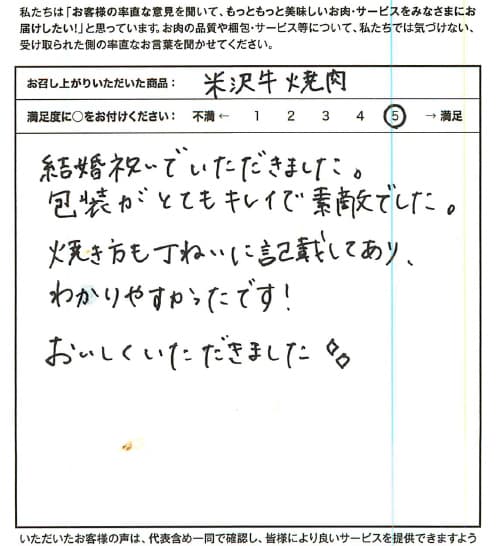 私たちは「お客様の率直な意見を聞いて、もっともっと美味しいお肉・サービスをみなさまにお
届けしたい!」と思っています。お肉の品質や梱包・サービス等について、私たちでは気づけない、
受け取られた側の率直なお言葉を聞かせてください。
お召し上がりいただいた商品： 米沢牛焼肉
満足度に○をお付けください： 不満 ← 1 2 3 4 5 → 満足
結婚祝いでいただきました。
包装がとてもキレイで素敵でした。
焼き方も丁ねいに記載してあり、
わかりやすかったです!
おいしくいただきました
いただいたお客様の声は、代表含め一同で確認し、皆様により良いサービスを提供できますよう